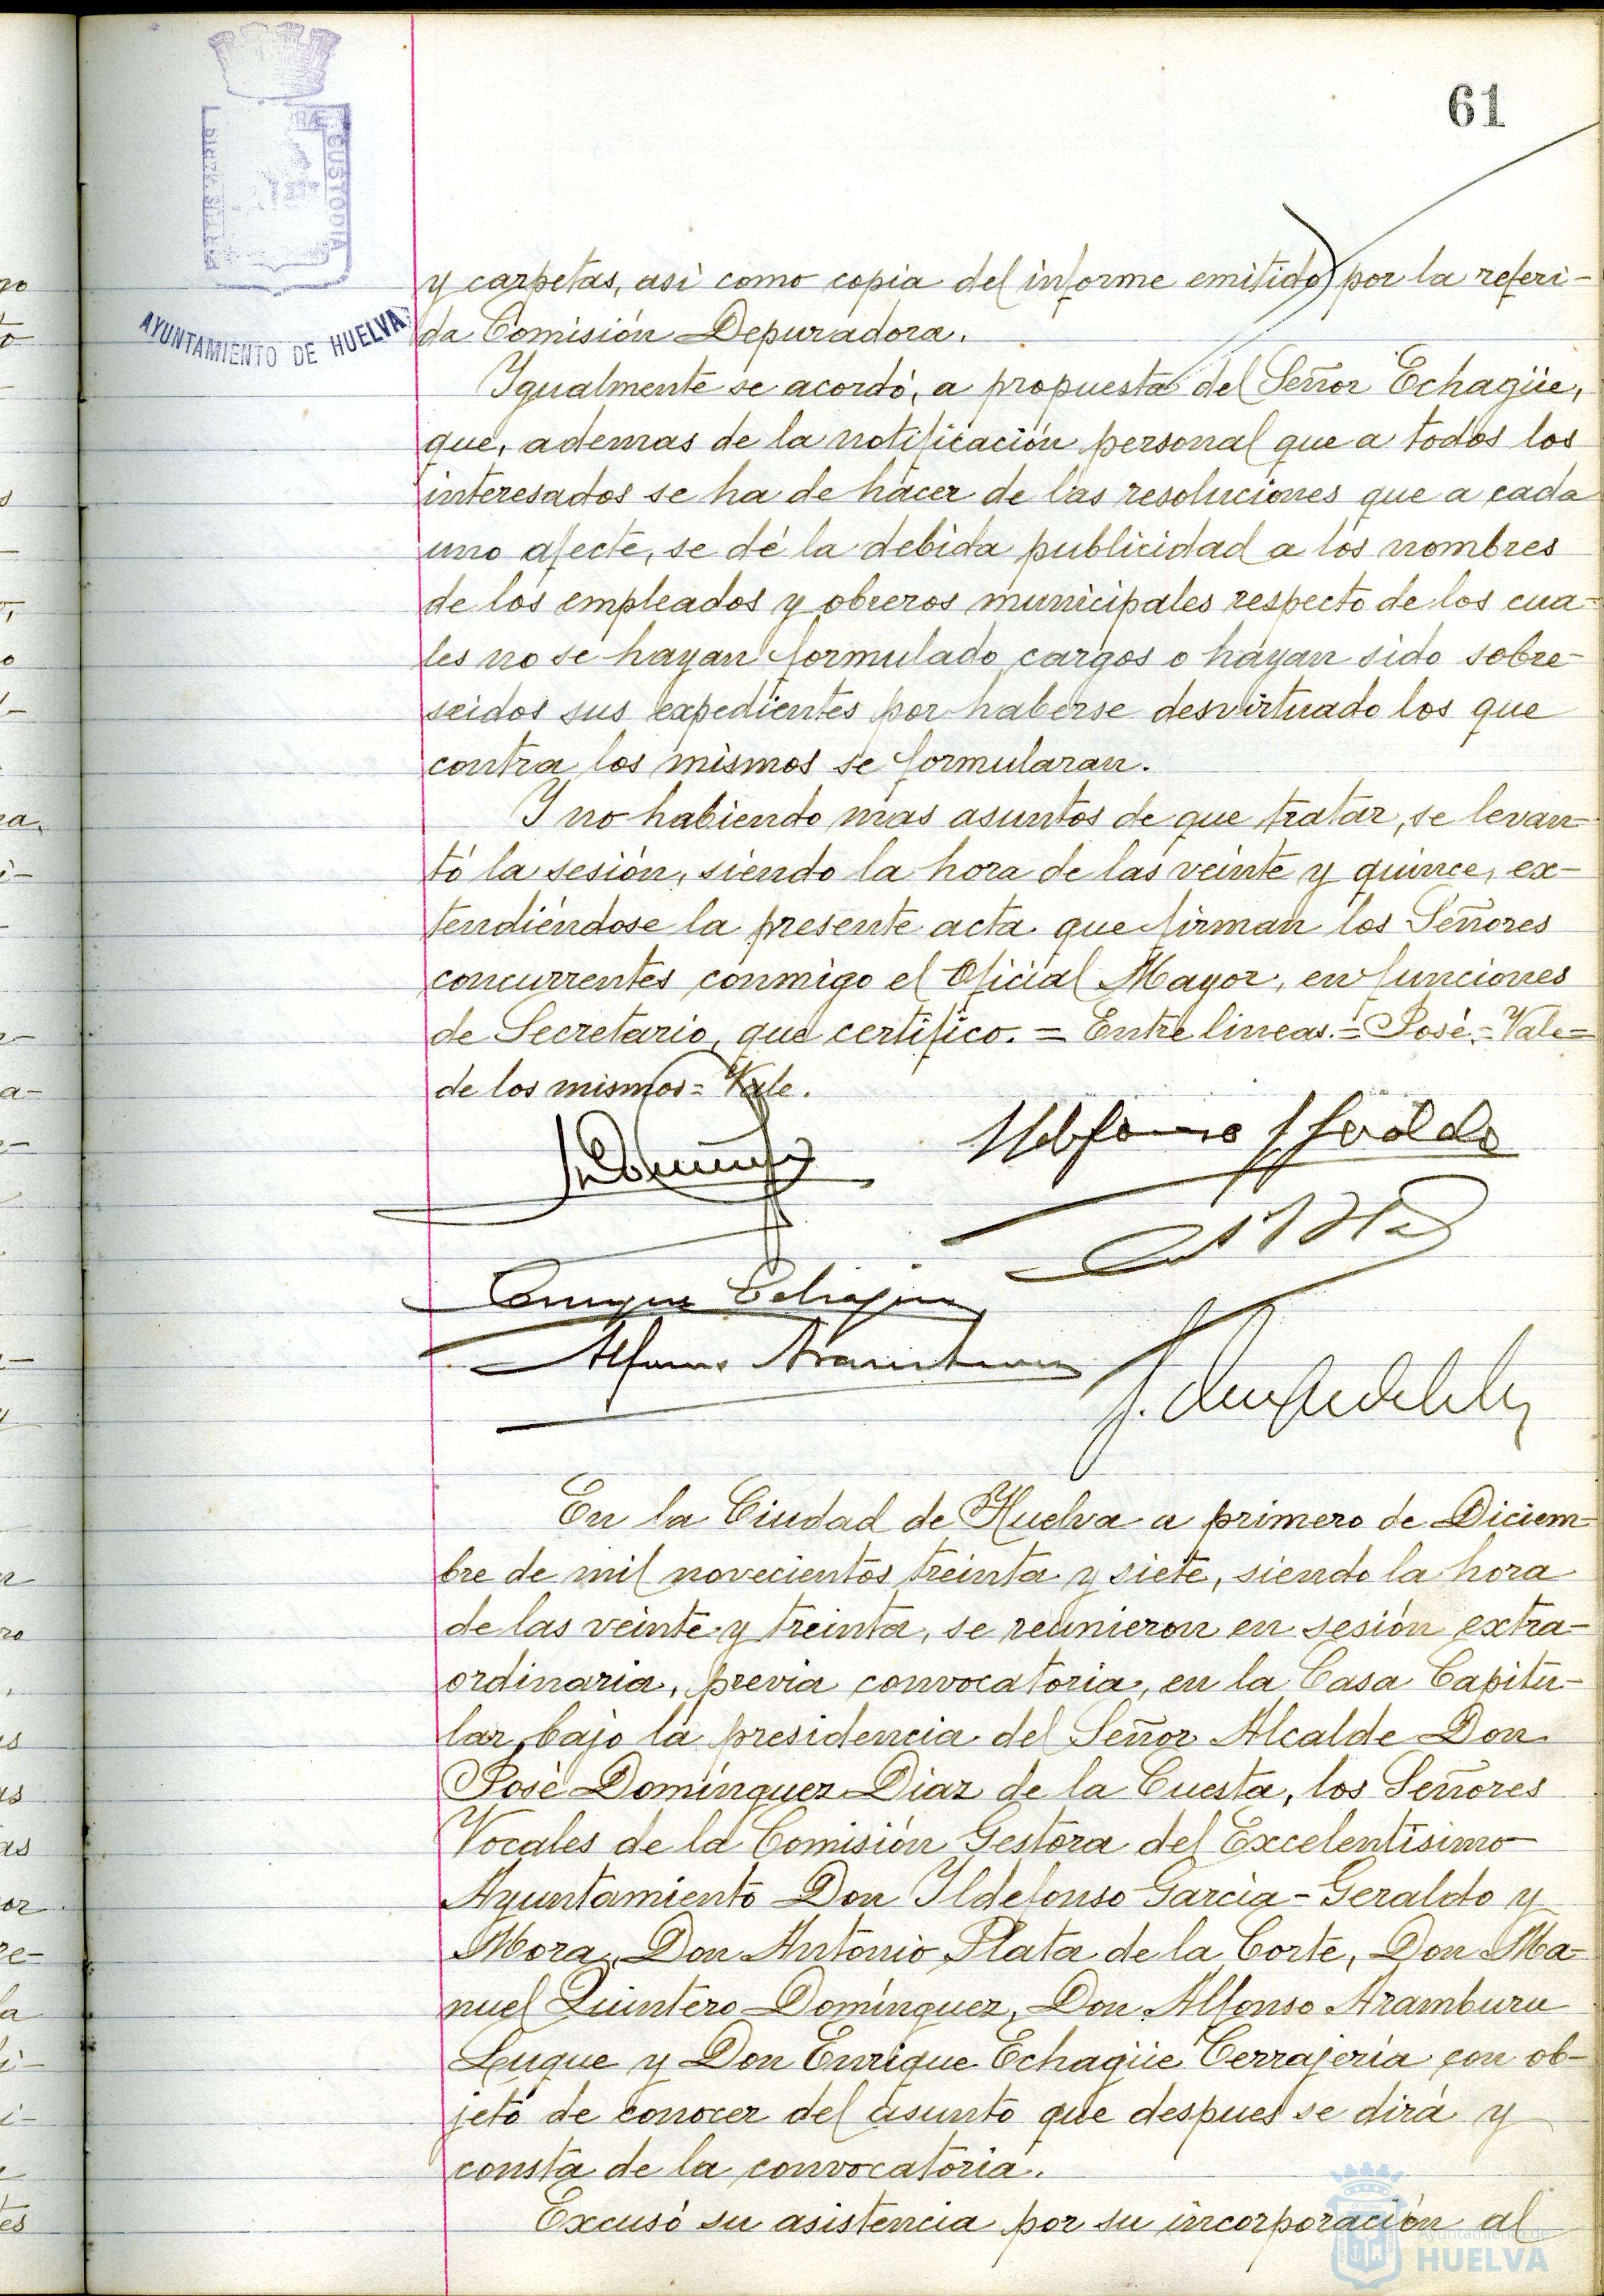 61
PORTUS MARIS
CUSTODIA
AYUNTAMIENTO DE HUELVA
y carpetas, asi como copia del informe emitido por la referi-
da Comisión Depuradora.
Igualmente se acordó, a propuesta del Señor Echagüe,
que, ademas de la notificación personal que a todos los
interesados se ha de hacer de las resoluciones que a cada
uno afecte, se dé la debida publicidad a los nombres
de los empleados y obreros municipales respecto de los cua-
les no se hayan formulado cargos o hayan sido sobre-
seidos sus expedientes por haberse desvirtuado los que
contra los mismos se formularan.
Y no habiendo mas asuntos de que tratar, se levan-
tó la sesión, siendo la hora de las veinte y quince, ex-
tendiéndose la presente acta que firman los Señores
concurrentes conmigo el Oficial Mayor, en funciones
de Secretario, que certifico. = Entre lineas. = José. = Vale =
de los mismos = Vale.
Ildefonso G Geraldo
Enrique Echagüe
Alfonso Aramburu
En la Ciudad de Huelva a primero de Diciem-
bre de mil novecientos treinta y siete, siendo la hora
de las veinte y treinta, se reunieron en sesión extra-
ordinaria, previa convocatoria, en la Casa Capitu-
lar, bajo la presidencia del Señor Alcalde Don
José Domínguez Diaz de la Cuesta, los Señores
Vocales de la Comisión Gestora del Excelentísimo
Ayuntamiento Don Ildefonso Garcia-Geraldo y
Mora, Don Antonio Plata de la Corte, Don Ma-
nuel Quintero Domínguez, Don Alfonso Aramburu
Luque y Don Enrique Echagüe Cerrajería con ob-
jeto de conocer del asunto que despues se dirá y
consta de la convocatoria.
Excusó su asistencia por su incorporación al
Ayuntamiento de
HUELVA